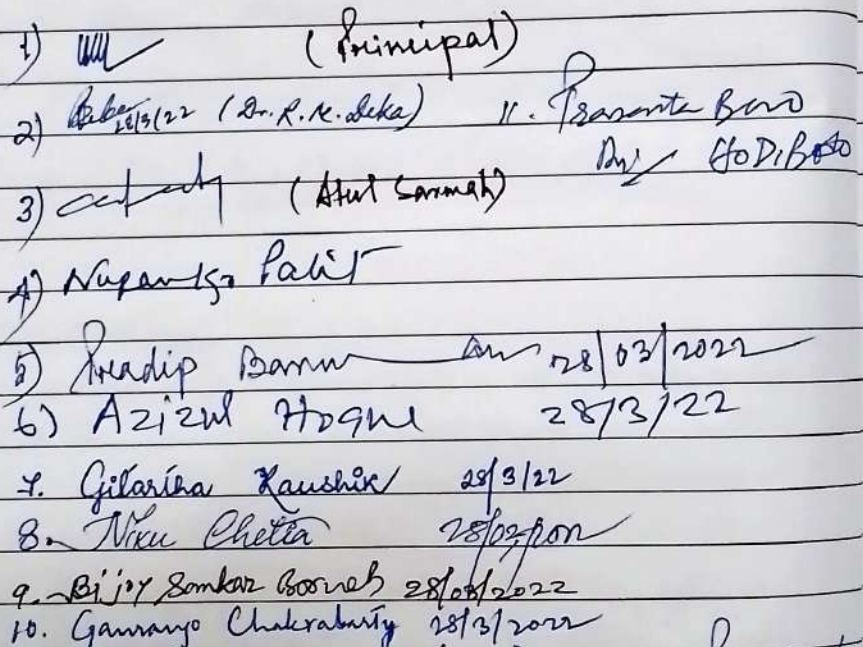 1) (Principal)
2) 28/3/22 (Dr. R. K. Deka)
11. Prasanta Boro
HoD, Bodo
3) (Atul Sarmah)
4) Palit
5) Pradip 28/03/2022
6) Azizul Hoque 28/3/22
7. Gitartha Kaushik 28/3/22
8. Niku Chetia
9. Bijoy Sankar Boruah 28/03/2022
10. Gauranga Chakrabarty 28/3/2022